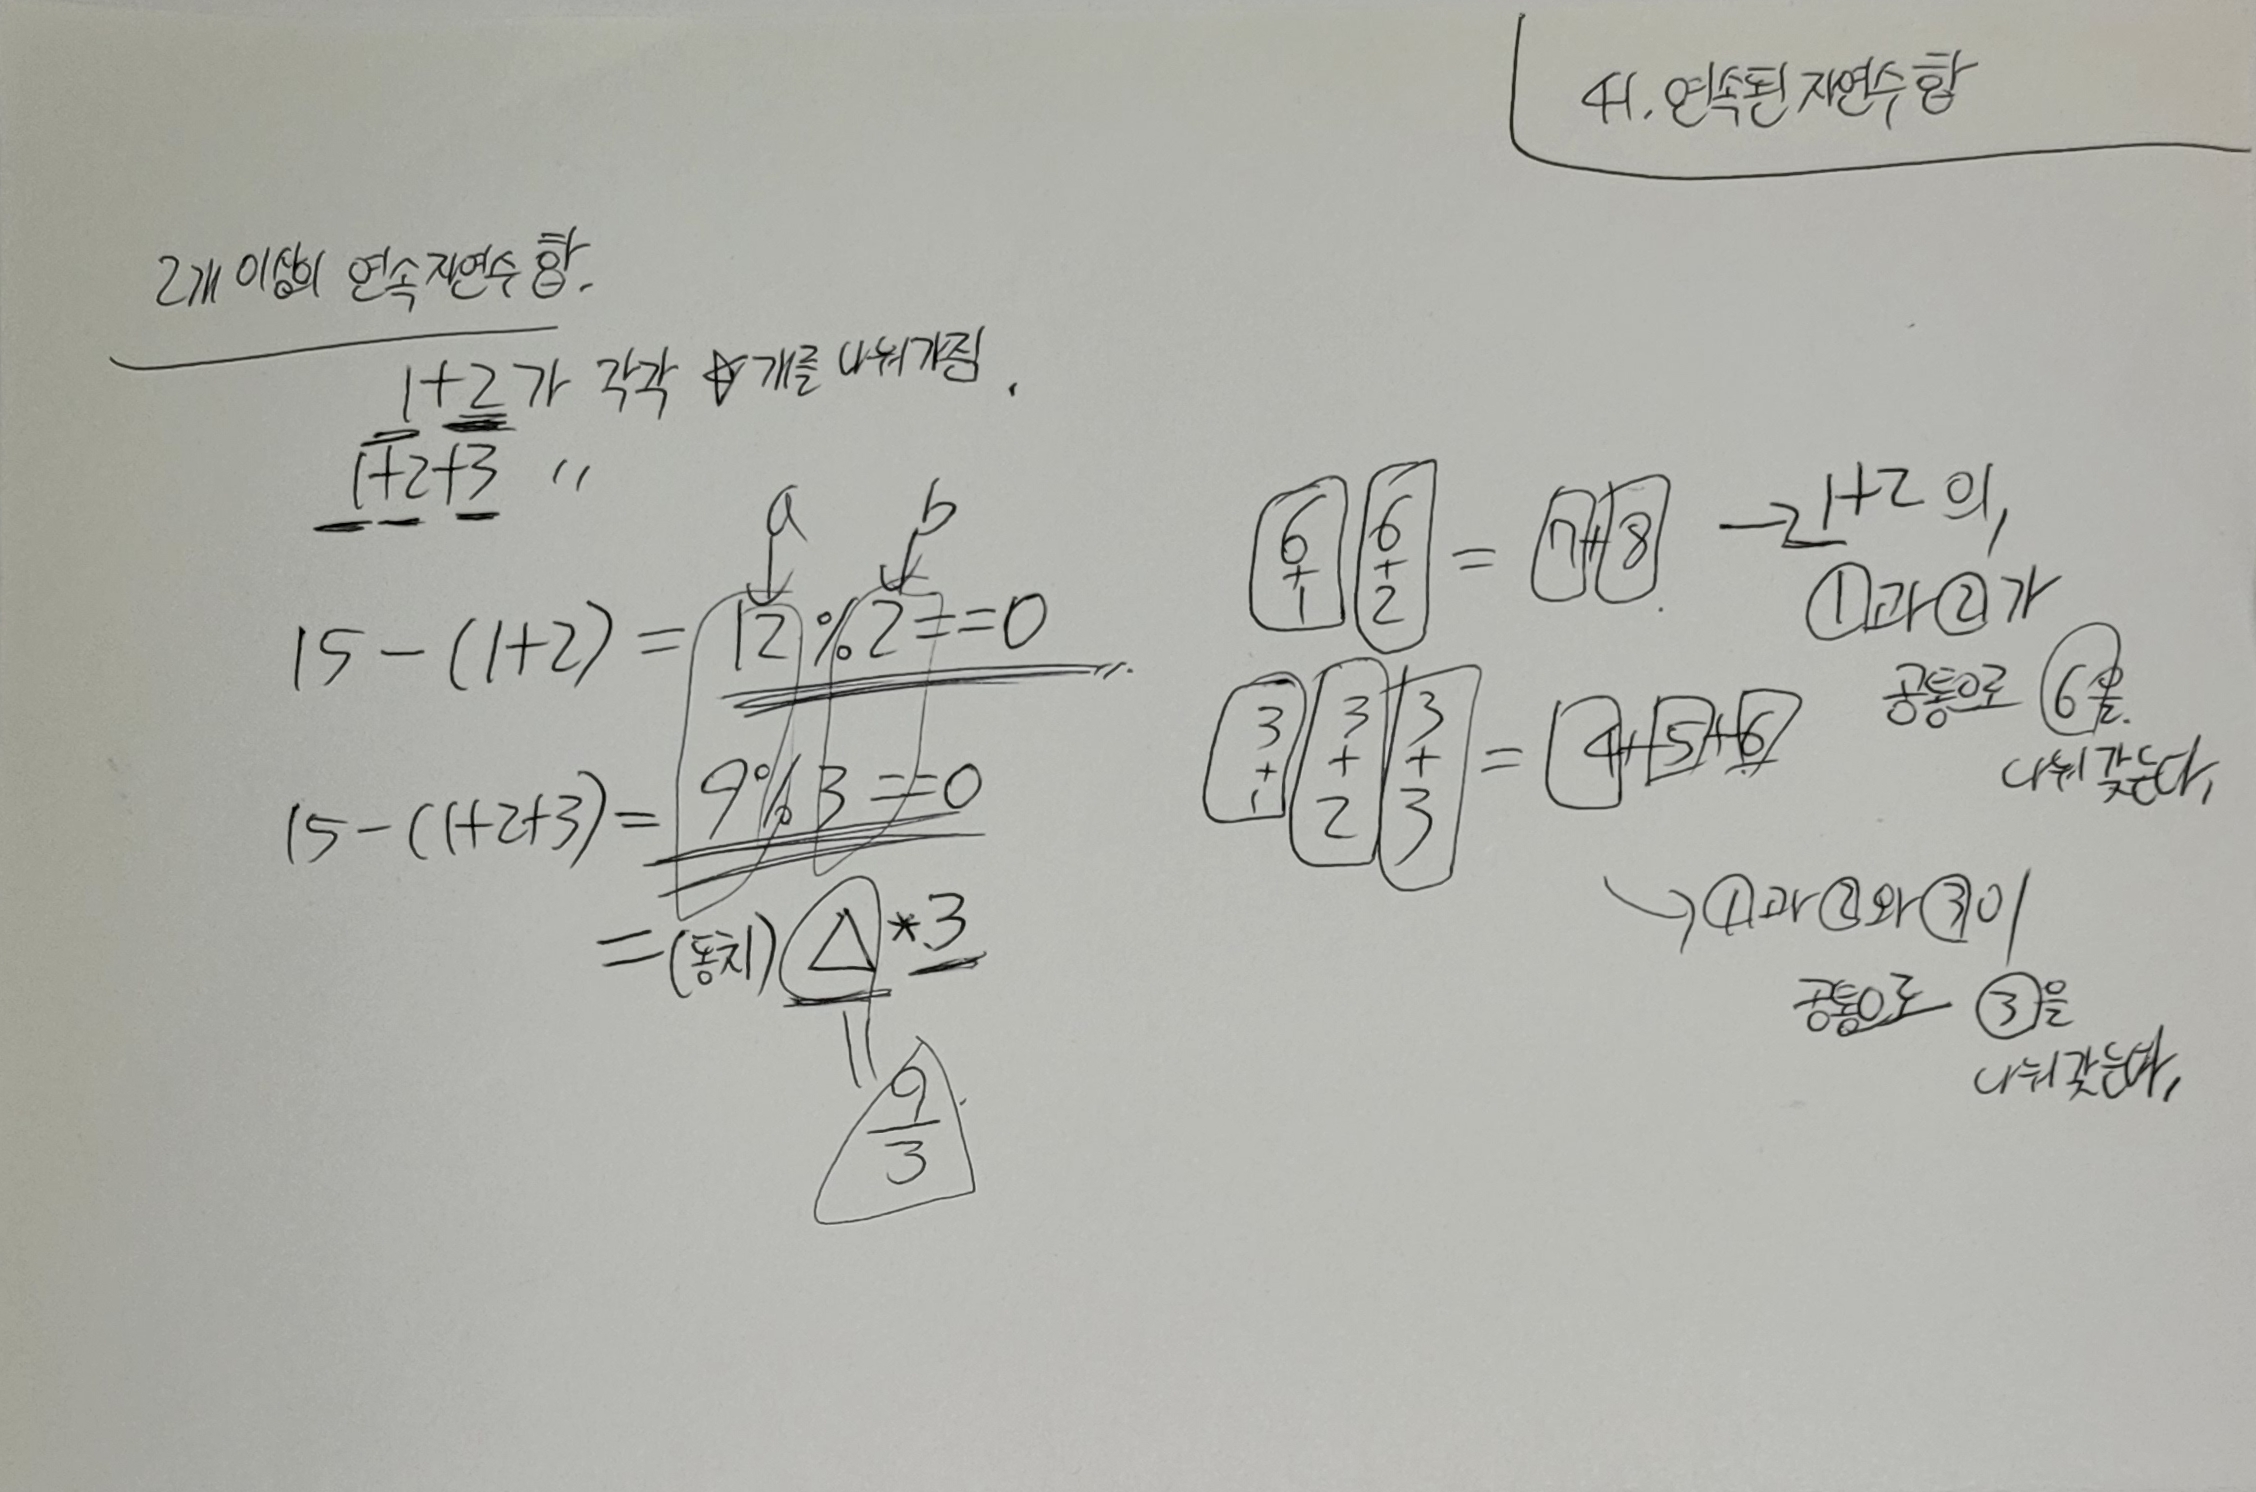 41. 연속된 자연수 합
2개 이상의 연속 자연수 합.
1+2가 각각 ☆개를 나눠가짐.
1+2+3 〃
a b
15-(1+2) = 12%2==0
15-(1+2+3) = 9%3==0
=(동치) △*3
=
9
3
6 6
+ +
1 2
= 7+8 → 1+2의,
①과 ②가
공통으로 ⑥을
나눠 갖는다,
3 3 3
+ + +
1 2 3
= 4+5+6
→ ①과 ②와 ③이
공통으로 ③을
나눠 갖는다,